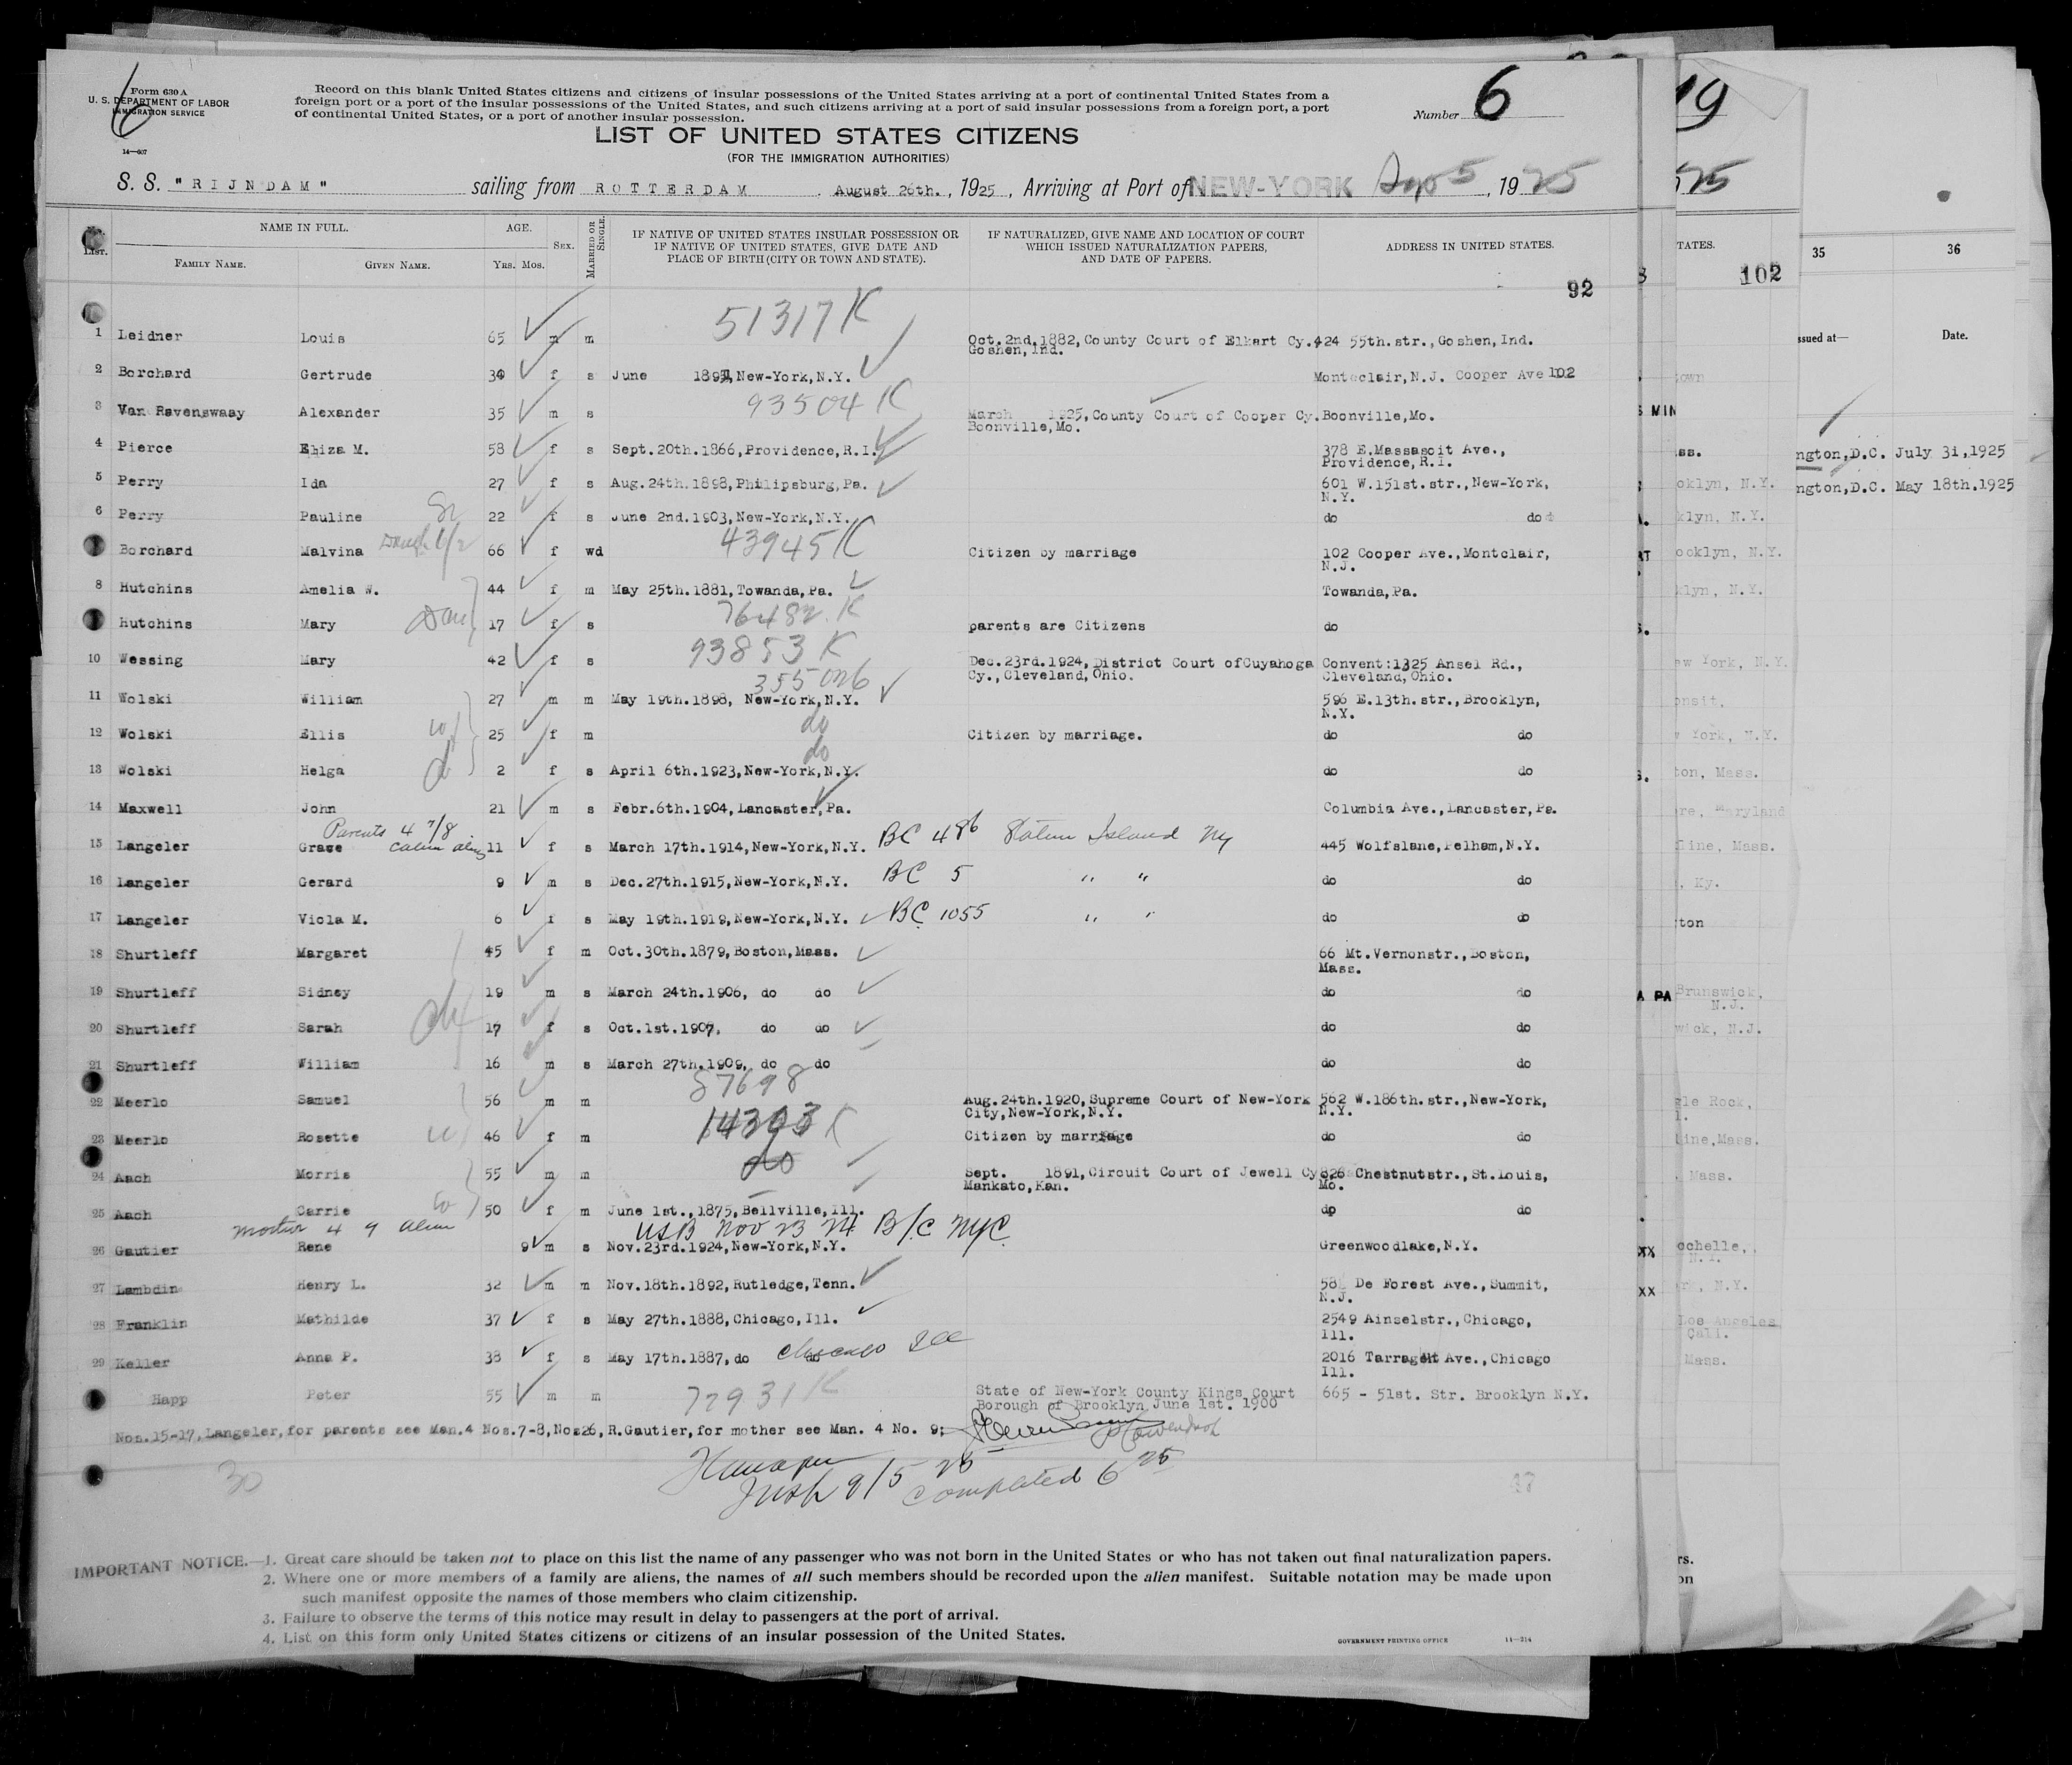 Form 630 A
U. S. DEPARTMENT OF LABOR
IMMIGRATION SERVICE
14—607
6
Record on this blank United States citizens and citizens of insular possessions of the United States arriving at a port of continental United States from a
foreign port or a port of the insular possessions of the United States, and such citizens arriving at a port of said insular possessions from a foreign port, a port
of continental United States, or a port of another insular possession.
Number 6
LIST OF UNITED STATES CITIZENS
(FOR THE IMMIGRATION AUTHORITIES)
S. S. "RIJNDAM" sailing from ROTTERDAM August 26th., 1925, Arriving at Port of NEW-YORK Sep 5, 1925
No. List. NAME IN FULL. AGE. SEX. MARRIED OR SINGLE. IF NATIVE OF UNITED STATES INSULAR POSSESSION OR IF NATIVE OF UNITED STATES, GIVE DATE AND PLACE OF BIRTH (CITY OR TOWN AND STATE). IF NATURALIZED, GIVE NAME AND LOCATION OF COURT WHICH ISSUED NATURALIZATION PAPERS, AND DATE OF PAPERS. ADDRESS IN UNITED STATES.
FAMILY NAME. GIVEN NAME. YRS. MOS.
92
51317 K
1 Leidner Louis 65 m m Oct.2nd.1882,County Court of Elkart Cy. Goshen,Ind. 424 55th.str.,Goshen,Ind.
2 Borchard Gertrude f s June New-York,N.Y. Montclair,N.J. Cooper Ave 102
93504 K
3 Van Ravenswaay Alexander 35 m s March 1925,County Court of Cooper Cy. Boonville,Mo. Boonville,Mo.
4 Pierce Eliza M. 58 f s Sept.20th.1866,Providence,R.I. 378 E.Massasoit Ave., Providence,R.I.
5 Perry Ida 27 f s Aug.24th.1898,Philipsburg,Pa. 601 W.151st.str.,New-York, N.Y.
6 Perry Pauline 22 f s June 2nd.1903,New-York,N.Y. do do
43945 K
Borchard Malvina 66 f wd Citizen by marriage 102 Cooper Ave.,Montclair, N.J.
8 Hutchins Amelia W. 44 f m May 25th.1881,Towanda,Pa. Towanda,Pa.
76482 K
Hutchins Mary Dau 17 f s parents are Citizens do
93853 K
10 Wessing Mary 42 f s Dec.23rd.1924, District Court ofCuyahoga Cy.,Cleveland,Ohio. Convent:1325 Ansel Rd., Cleveland,Ohio.
11 Wolski William 27 m m May 19th.1898, New-York,N.Y. 596 E.13th.str.,Brooklyn, N.Y.
do
12 Wolski Ellis 25 f m Citizen by marriage. do do
do
13 Wolski Helga d 2 f s April 6th.1923,New-York,N.Y. do do
14 Maxwell John 21 m s Febr.6th.1904,Lancaster,Pa. Columbia Ave.,Lancaster,Pa.
Parents 4 7/8
15 Langeler Grace 11 f s March 17th.1914,New-York,N.Y. BC 486 Staten Island Ny 445 Wolfslane,Pelham,N.Y.
16 Langeler Gerard 9 m s Dec.27th.1915,New-York,N.Y. BC 5 " " do do
17 Langeler Viola M. 6 f s May 19th.1919,New-York,N.Y. BC 1055 " " do do
18 Shurtleff Margaret 45 f m Oct.30th.1879,Boston,Mass. 66 Mt.Vernonstr.,Boston, Mass.
19 Shurtleff Sidney 19 m s March 24th.1906, do do do do
20 Shurtleff Sarah 17 f s Oct.1st.1907, do do do do
21 Shurtleff William 16 m s March 27th.1909, do do do do
87698
22 Meerlo Samuel 56 m m Aug.24th.1920,Supreme Court of New-York City,New-York,N.Y. 562 W.186th.str.,New-York, N.Y.
14303 K
23 Meerlo Rosette w 46 f m Citizen by marriage do do
do
24 Aach Morris 55 m m Sept. 1891,Circuit Court of Jewell Cy Mankato,Kan. 826 Chestnutstr.,St.Louis, Mo.
25 Aach Carrie w 50 f m June 1st.,1875,Bellville,Ill. do do
mother 4 9 alien USB Nov 23 24 B/C NYC
26 Gautier Rene 9 m s Nov.23rd.1924,New-York,N.Y. Greenwoodlake,N.Y.
27 Lambdin Henry L. 32 m m Nov.18th.1892,Rutledge,Tenn. 58 De Forest Ave.,Summit, N.J.
28 Franklin Mathilde 37 f s May 27th.1888,Chicago,Ill. 2549 Ainselstr.,Chicago, Ill.
29 Keller Anna P. 38 f s May 17th.1887,do do Chicago Ill 2016 Ave.,Chicago Ill.
Happ Peter 55 m m 72931 K State of New-York County Kings Court Borough of Brooklyn June 1st. 1900 665 - 51st. Str. Brooklyn N.Y.
Nos.15-17,Langeler,for parents see Man.4 Nos.7-8,Nos26,R.Gautier,for mother see Man. 4 No. 9;
30
9/5 25 Completed 6 25
IMPORTANT NOTICE.—1. Great care should be taken not to place on this list the name of any passenger who was not born in the United States or who has not taken out final naturalization papers.
2. Where one or more members of a family are aliens, the names of all such members should be recorded upon the alien manifest. Suitable notation may be made upon
such manifest opposite the names of those members who claim citizenship.
3. Failure to observe the terms of this notice may result in delay to passengers at the port of arrival.
4. List on this form only United States citizens or citizens of an insular possession of the United States.
GOVERNMENT PRINTING OFFICE 14—214
19
25
TATES.
102
own
ass.
oklyn, N.Y.
klyn, N.Y.
ooklyn, N.Y.
klyn, N.Y.
ew York, N.Y.
York, N.Y.
ton, Mass.
re, Maryland
line, Mass.
, Ky.
ton
Brunswick, N.J.
wick, N.J.
gle Rock,
line,Mass.
Mass.
ochelle,
N.Y.
Los Angeles Cali.
Mass.
35 36
ssued at— Date.
ngton,D.C. July 31,1925
ngton,D.C. May 18th.1925